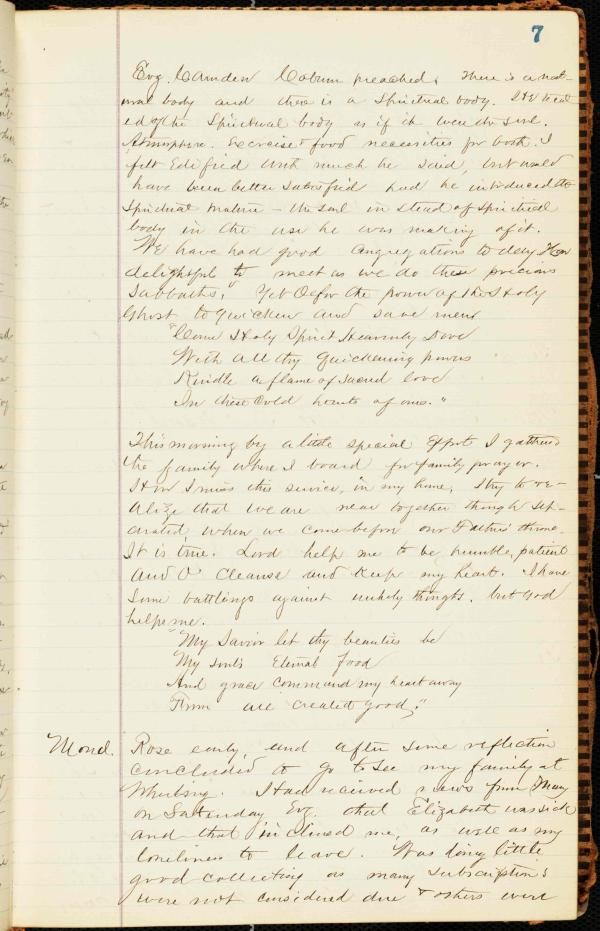 7
Evg. Camden Coburn preached, There is a nat-
ural body and there is a Spiritual body. He treat
ed of the Spiritual body as if it were the Soul.
Atmosphere. Exercise & food necessities for both. I
felt Edified with much he said, but would
have been better Satisfied had he introduced the
Spiritual nature – the soul in stead of Spiritual
body in the use he was making of it.
We have had good congregations to day How
delightful to meet as we do these precious
Sabbaths." Yet O for the power of the Holy
Ghost to quicken and save men
"Come Holy Spirit Heavenly Dove
With all thy Quickening powers
Kindle a flame of sacred love
In these cold hearts of ours."
This morning by a little special effort I gathered
the family where I board for family prayer.
How I miss this service, in my home, I try to re-
alize that we are near together though sep-
arated, when we come before our Father's throne.
It is true. Lord help me to be humble, patient
and O' Cleanse and Keep my heart. I have
Some battlings against unholy thoughts. but God
helps me.
"My Savior let thy beauties be
My soul's Eternal food
And grace command my heart away
From all created good,"
Mond. Rose early, and after some reflection
concluded to go to see my family at
Whiting. I had received news from Mary
on Saturday Evg. that Elizabeth was sick
and that inclined me, as well as my
loneliness to leave. Was doing little
good collecting as many subscriptions
were not considered due & others were